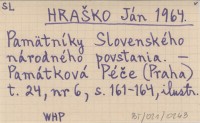 SL
HRAŠKO Ján 1964.
Pamätníky Slovenského
národného povstania. —
Památková Péče (Praha)
t. 24, nr 6, s. 161-164, ilustr.
WHP